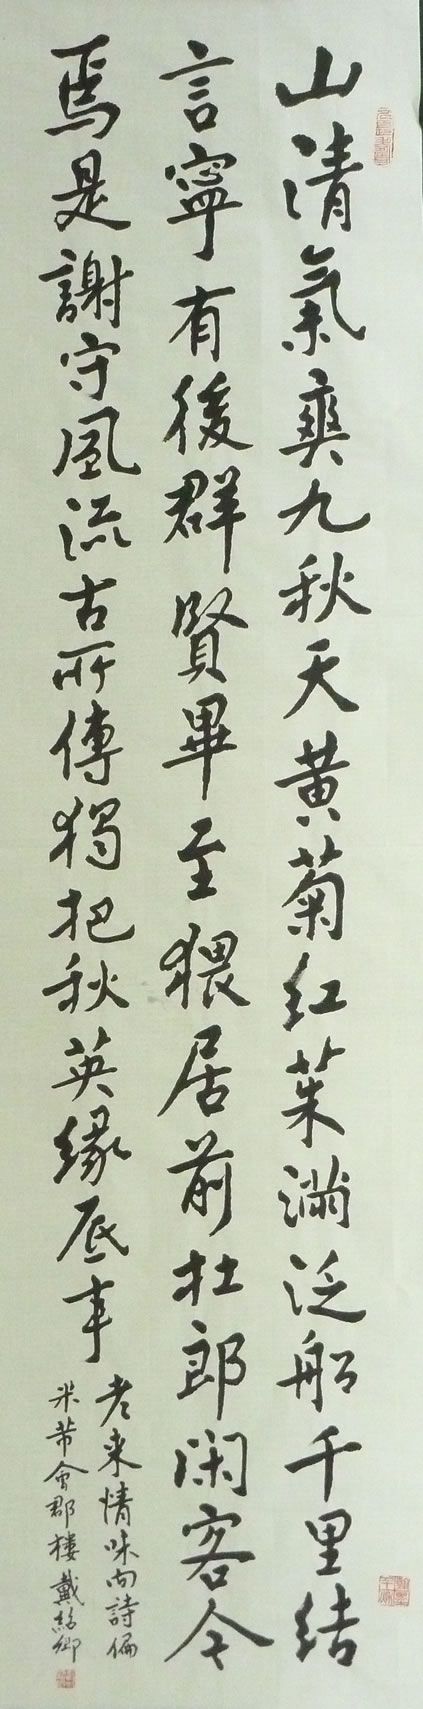 山清氣爽九秋天黄菊紅茱滿泛船千里結
言寧有後群賢畢至猥居前杜郎閑客今
焉是謝守風流古所傳獨把秋英緣底事
老来情味向詩偏
米芾會郡樓 戴紹卿